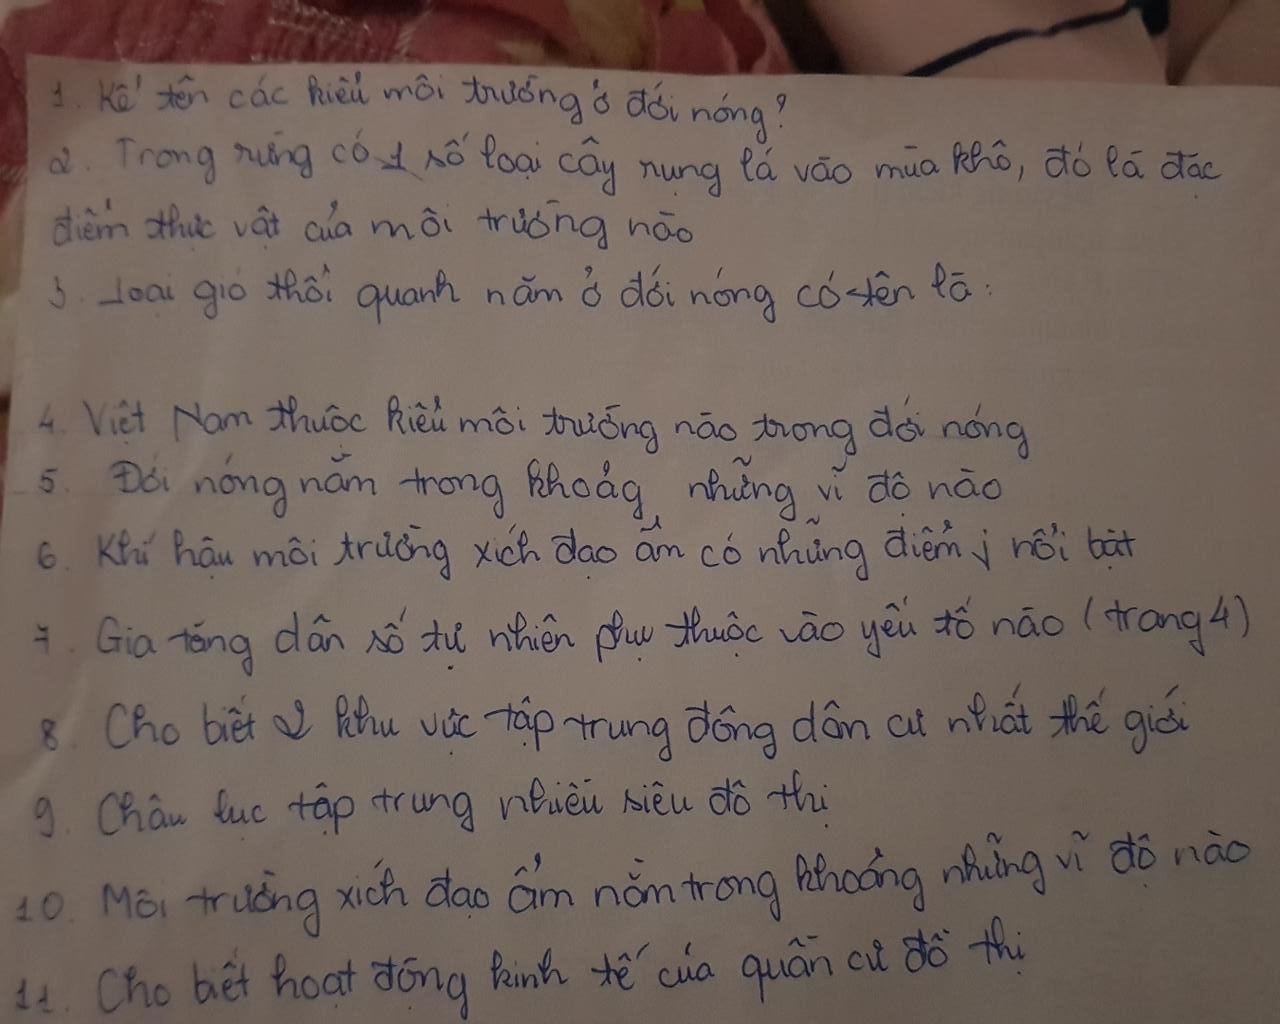 1. Kể tên các kiểu môi trường ở đới nóng?
2. Trong rừng có 1 số loại cây rụng lá vào mùa khô, đó là đặc
điểm thực vật của môi trường nào
3. Loại gió thổi quanh năm ở đới nóng có tên là:
4. Việt Nam thuộc kiểu môi trường nào trong đới nóng
5. Đới nóng nằm trong khoảg những vĩ độ nào
6. Khí hậu môi trường xích đạo ẩm có những điểm j nổi bật
7. Gia tăng dân số tự nhiên phụ thuộc vào yếu tố nào (trang 4)
8. Cho biết 2 khu vực tập trung đông dân cư nhất thế giới
9. Châu lục tập trung nhiều siêu đô thị
10. Môi trường xích đạo ẩm nằm trong khoảng những vĩ độ nào
11. Cho biết hoạt động kinh tế của quần cư đô thị